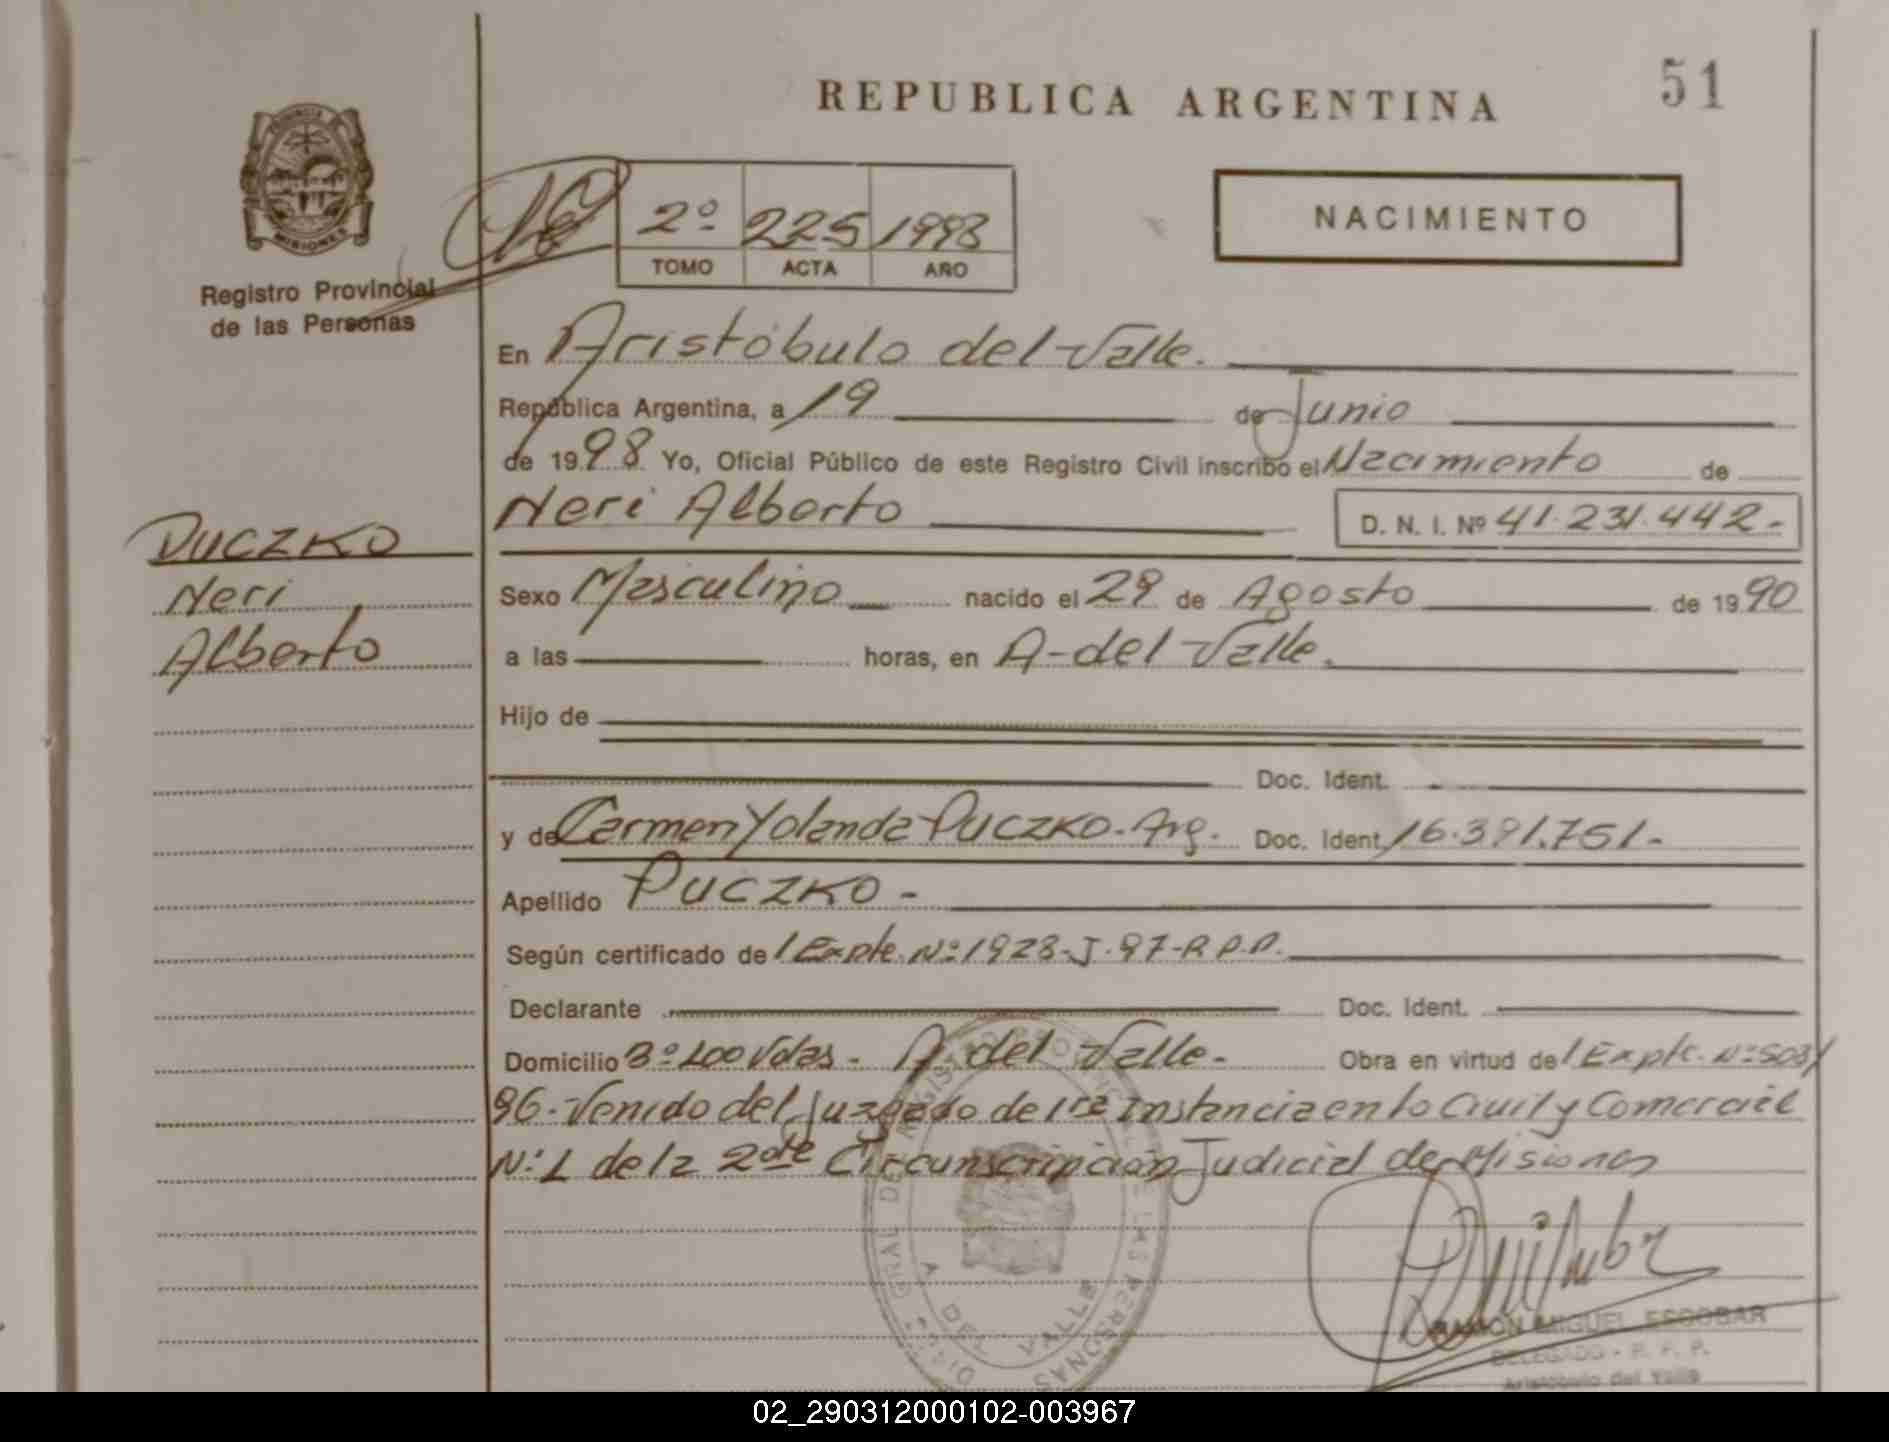 51
REPUBLICA ARGENTINA
PROVINCIA
MISIONES
Registro Provincial
de las Personas
2º 225 1998
TOMO ACTA AÑO
NACIMIENTO
En Aristóbulo del Valle.
República Argentina, a 19 de Junio
de 1998 Yo, Oficial Público de este Registro Civil inscribo el Nacimiento de
Neri Alberto D. N. I. Nº 41.231.442.-
PUCZKO
Neri
Alberto
Sexo Masculino nacido el 29 de Agosto de 1990
a las horas, en A-del Valle.
Hijo de
Doc. Ident.
y de Carmen Yolanda PUCZKO. Arg. Doc. Ident. 16.391.751.-
Apellido PUCZKO -
Según certificado de Expte. Nº 1928-J-97-R.P.P.
Declarante Doc. Ident.
Domicilio Bº 100 Vdas - A. del Valle.- Obra en virtud de Expte. Nº 503/
96. Venido del Juzgado de 1ra Instancia en lo Civil y Comercial
Nº 1 de la 2da Circunscripción Judicial de Misiones
A DEL VALLE
RAMON MIGUEL ESCOBAR
DELEGADO - R. P. P.
Aristóbulo del Valle
02_290312000102-003967